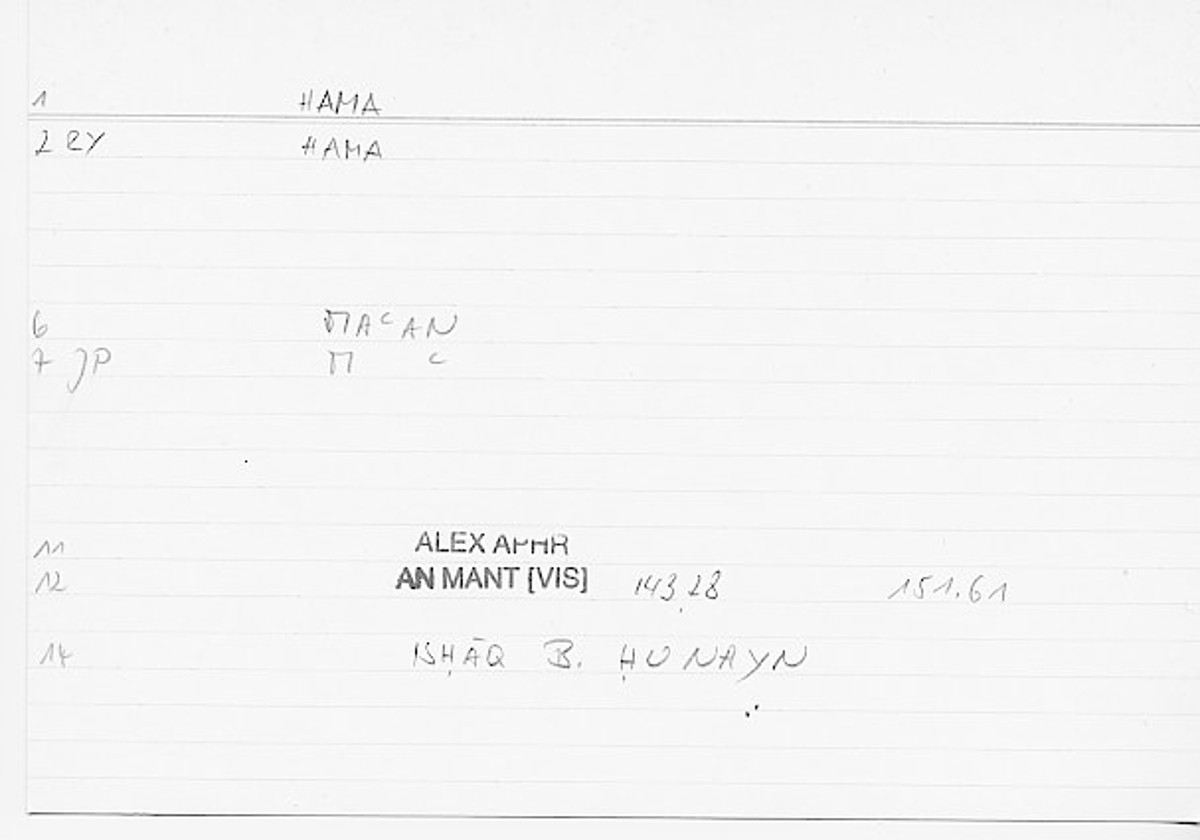 1 HAMA
2 RY HAMA
6 MAʿAN
7 JP M ʿ
11 ALEX APHR
12 AN MANT [VIS] 143,28 151.61
14 ISḤĀQ B. ḤUNAYN